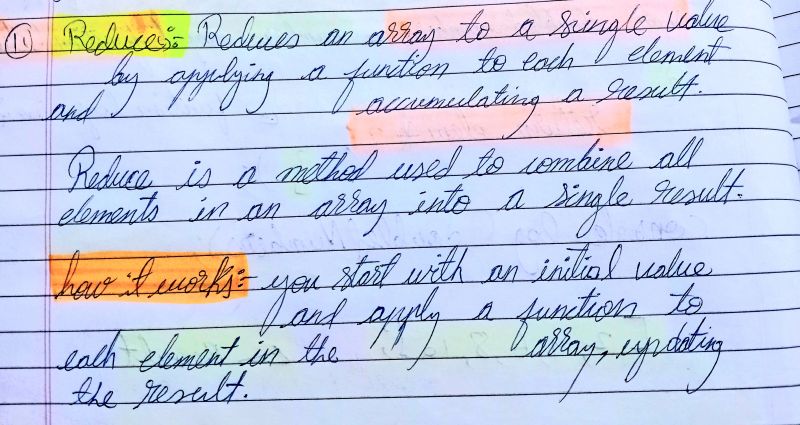 11 Reduces:- Reduces an array to a single value
by applying a function to each element
and accumulating a result.
Reduce is a method used to combine all
elements in an array into a single result.
how it works:- you start with an initial value
and apply a function to
each element in the array, updating
the result.